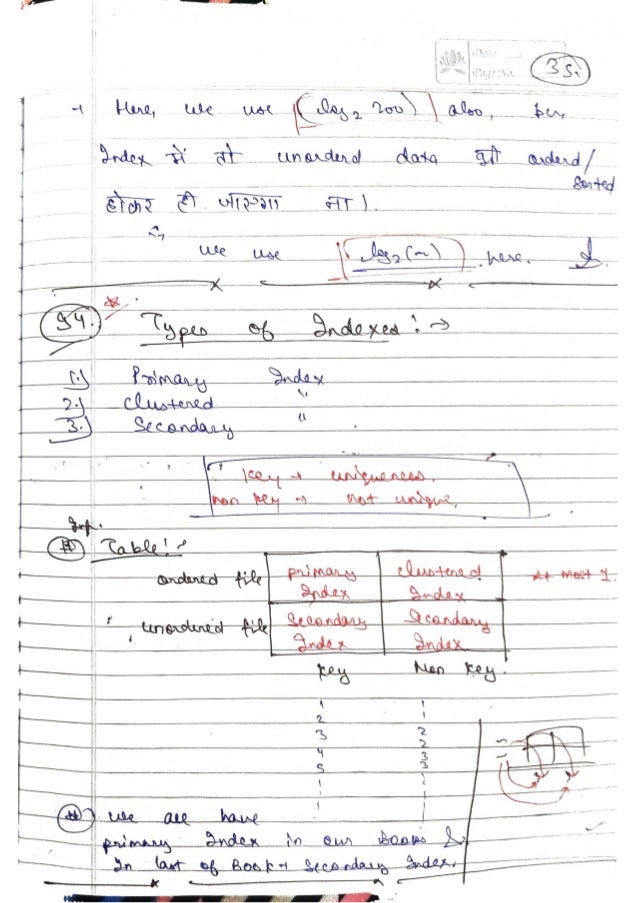 Date
Page No. 35.
→ Here, we use (log₂ 200) also, bcz
Index में तो unorderd data भी orderd/
Sorted
होकर ही जाएगा ना।
we use log₂(n) here.
94. Types of Indexed :→
1.) Primary Index
2.) Clustered "
3.) Secondary "
Key → uniqueness.
non key → not unique.
Imp.
(#) Table :→
ordered file primary Index clustered Index At most 1.
" unordered file Secondary Index Secondary Index
Key Non Key.
1 1
2 1
3 2
4 2
5 3
3
(#) we are have
primary Index in our Books &
In last of Book → Secondary Index.